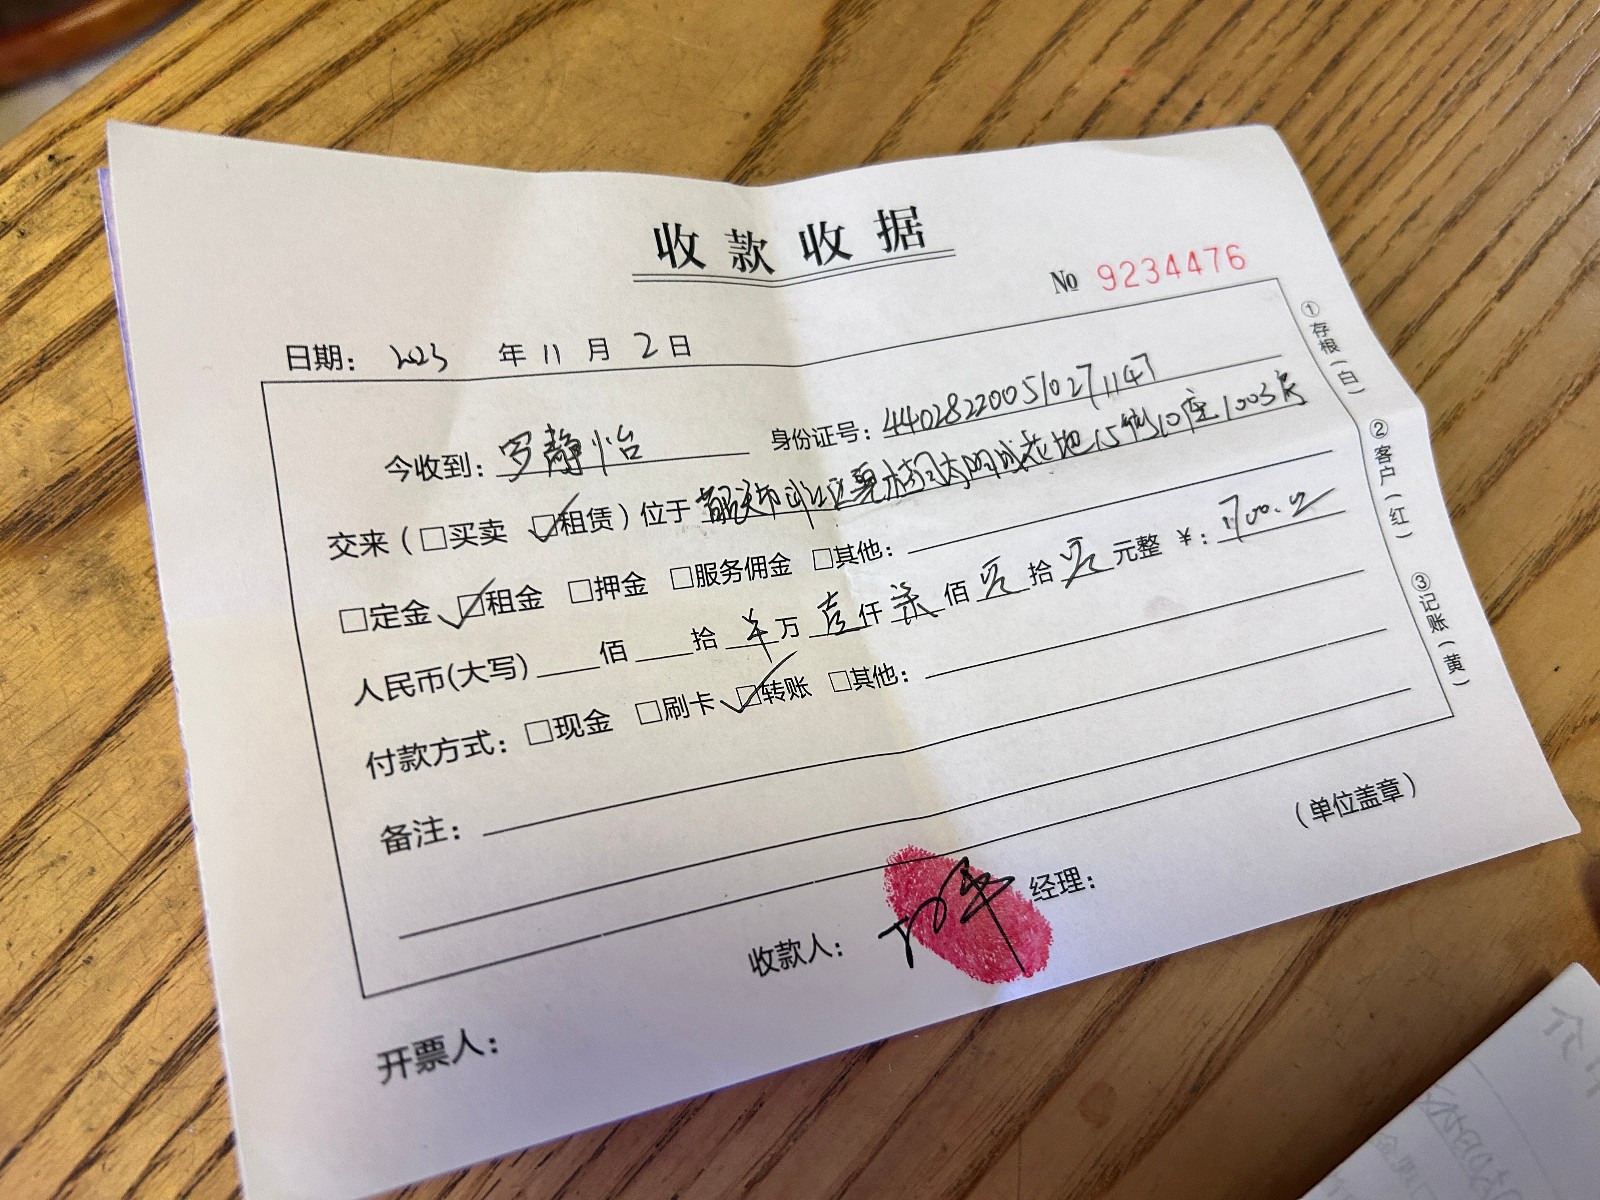 收款收据
No 9234476
日期： 2023 年 11 月 2 日
今收到：罗静怡 身份证号：440282200510271147
交来（□买卖 ☑租赁）位于 韶关市浈江区 碧桂园太阳城花地15街10座1003房
□定金 ☑租金 □押金 □服务佣金 □其他：
人民币(大写) 佰 拾 万 壹仟 柒佰 零拾 零元整 ￥： 1700.00
付款方式：□现金 □刷卡 ☑转账 □其他：
备注：
（单位盖章）
收款人： 经理：
开票人：
①存根（白） ②客户（红） ③记账（黄）